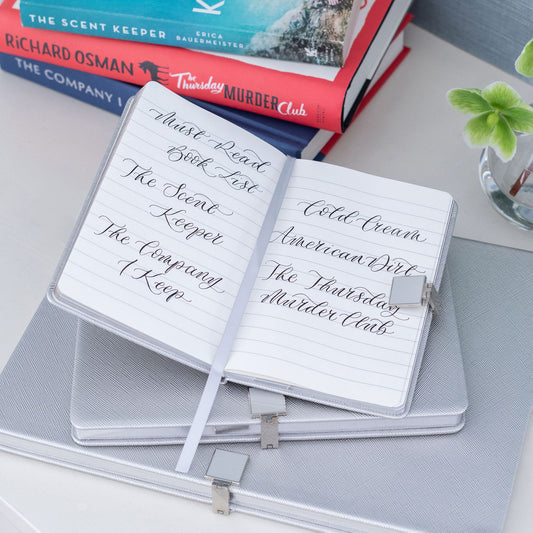 K
THE SCENT KEEPER
ERICA
BAUERMEISTER
RICHARD OSMAN The Thursday MURDER CLUB
THE COMPANY I
Must Read
Book List
The Scent
Keeper
The Company
I Keep
Cold Cream
American Dirt
The Thursday
Murder Club